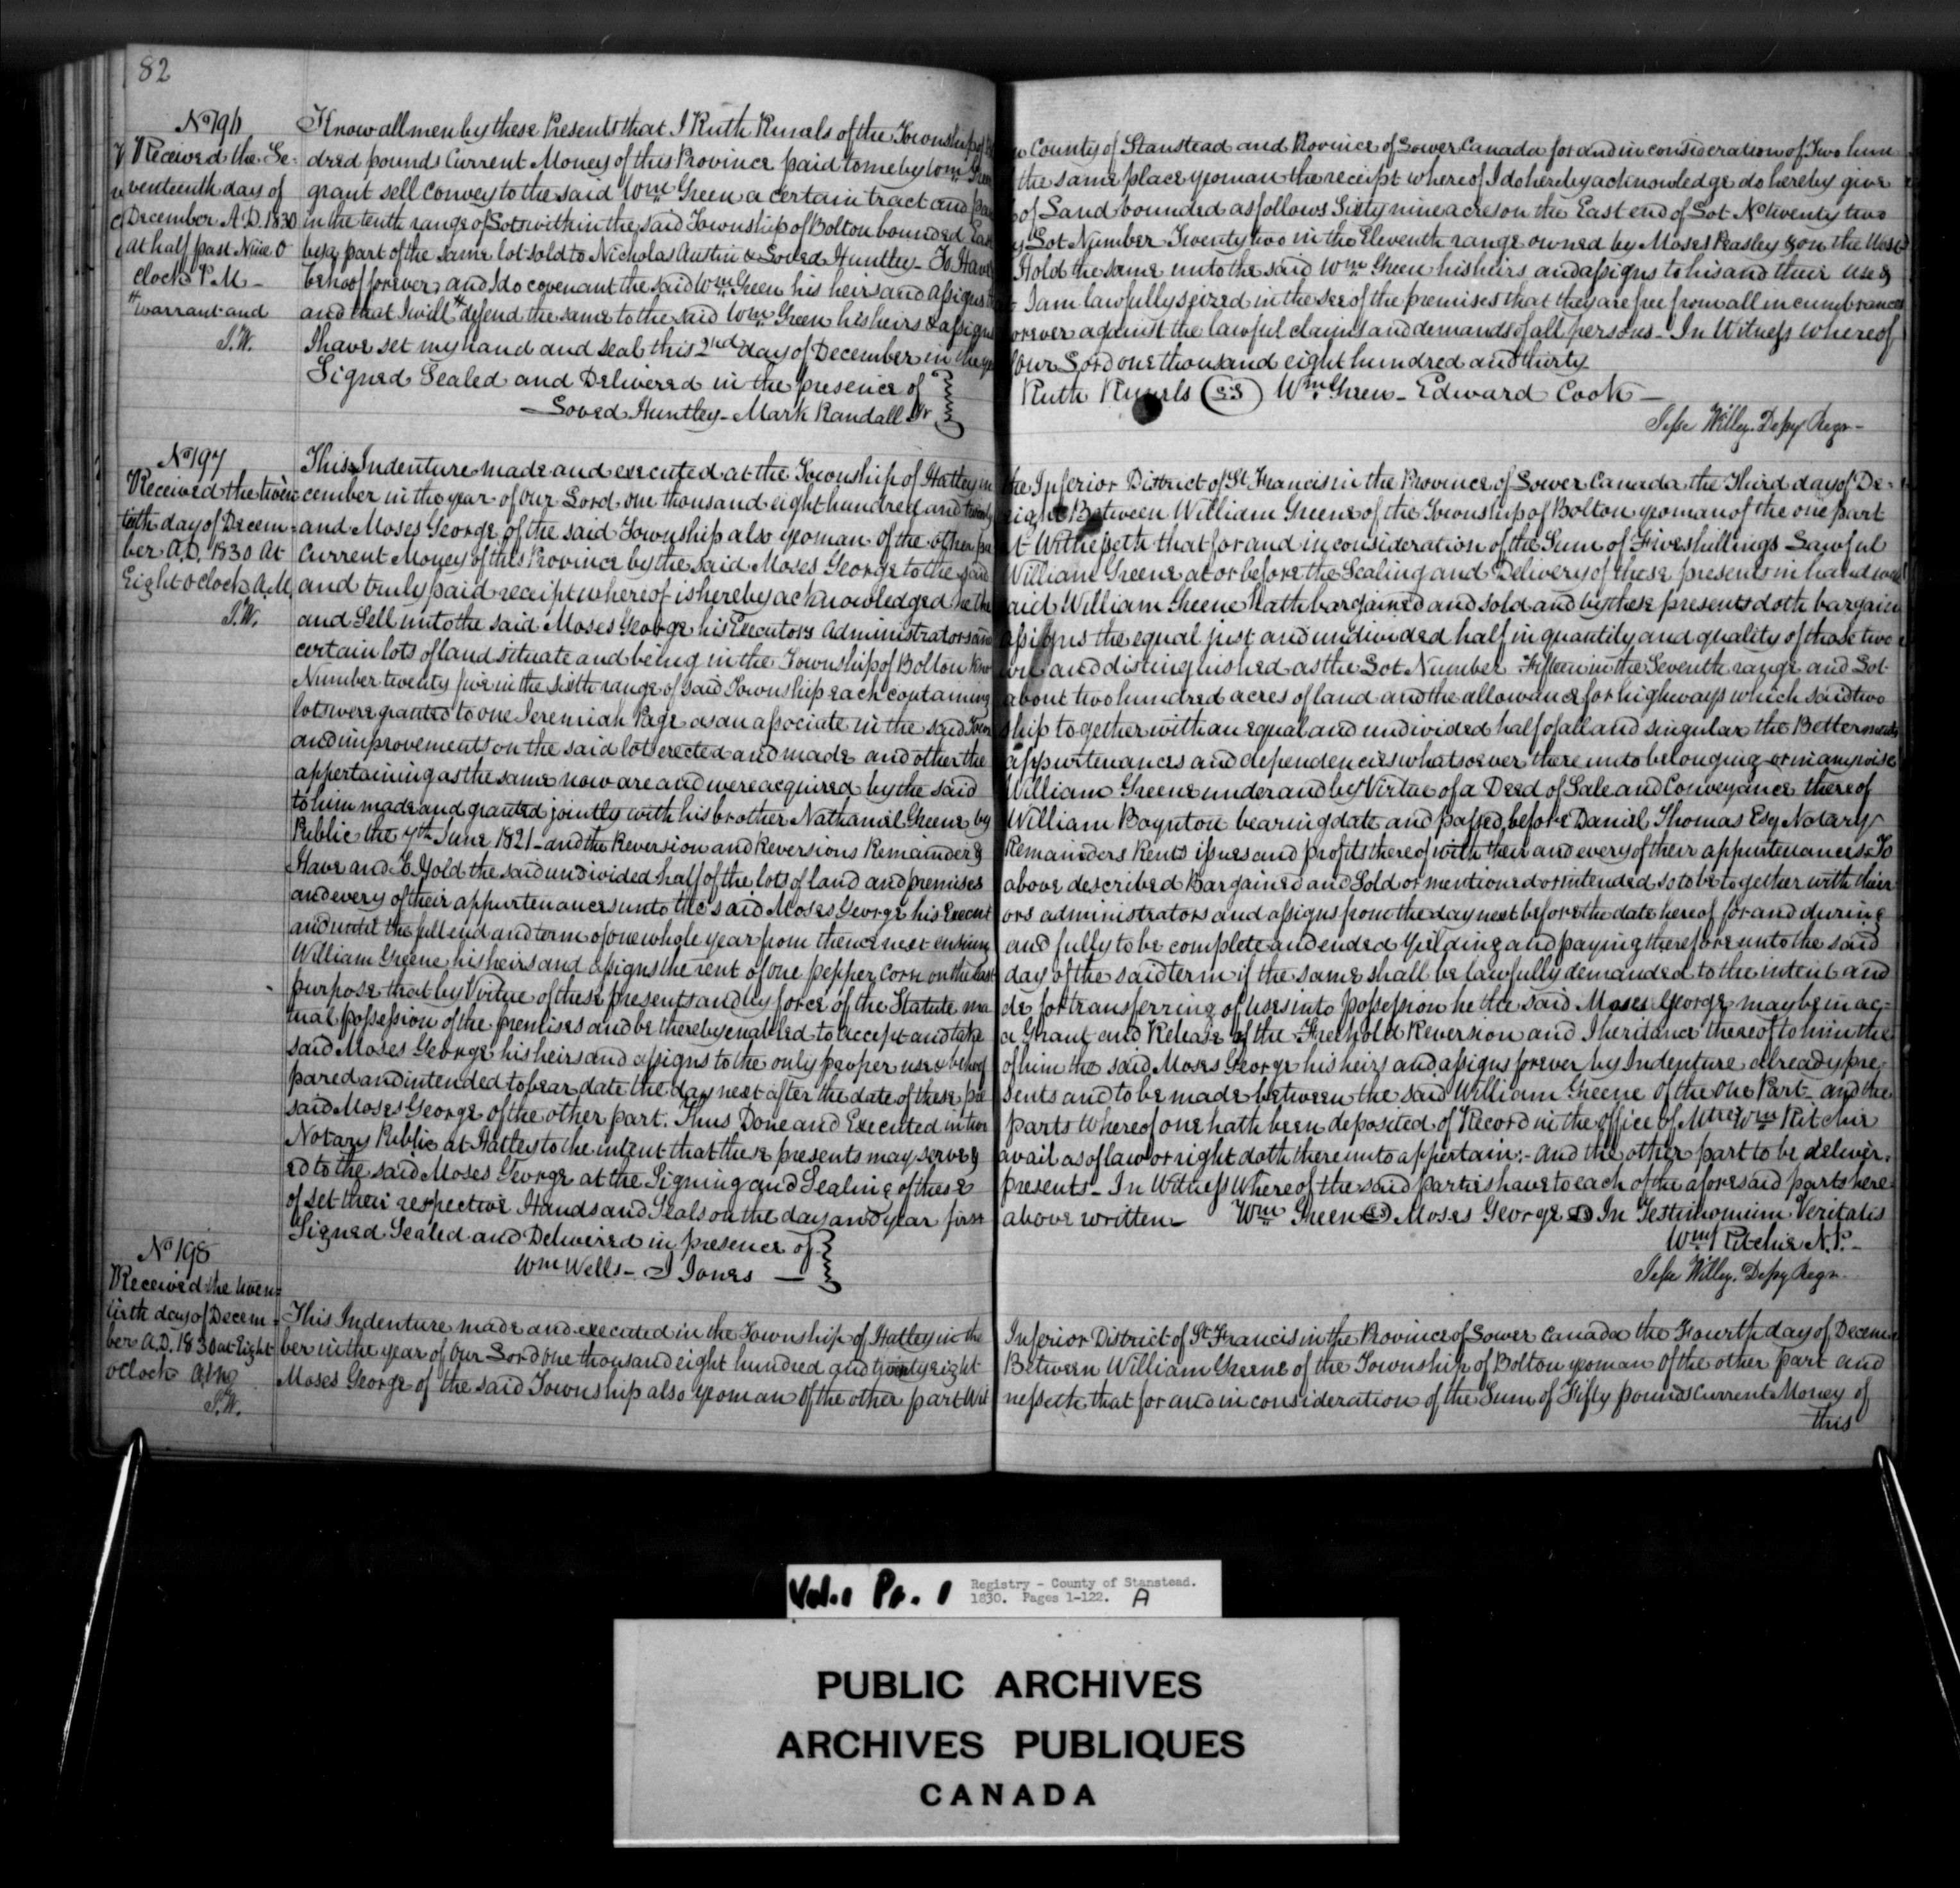 82
No 196
Received the Se-
venteenth day of
December A.D. 1830
at half past Nine O
clock P.M -
# warrant and
J.W.
Know all men by these Presents that I Ruth Runals of the Township of County of Stanstead and Province of Lower Canada for and in consideration of Two hun
dred pounds Current Money of this Province paid to me by Wm Green the same place yeoman the receipt whereof I do hereby acknowledge do hereby give
grant sell convey to the said Wm Green a certain tract and of Land bounded as follows Sixty nine acres on the East end of Lot No twenty two
in the tenth range of Lots within the said Township of Bolton bounded East by Lot Number Twenty two in the Eleventh range owned by Moses Peasley & on the West
by a part of the same lot sold to Nicholas Austin & Loved Huntley - To Have Hold the same unto the said Wm Green his heirs and assigns to his and their use &
behoof forever and I do covenant the said Wm Green his heirs and assigns I am lawfully seized in the fee of the premises that they are free from all incumbrances
and that I will # defend the same to the said Wm Green his heirs & assigns forever against the lawful claims and demands of all persons - In Witness whereof
I have set my hand and seal this 2nd day of December in the year four Lord one thousand eight hundred and thirty
Signed Sealed and Delivered in the presence of Ruth Runels (LS) Wm Green - Edward Cook -
Loved Huntley - Mark Randall Jr Jesse Willey. Depy Regr -
No 197
Received the twen
tieth day of Decem
ber A.D. 1830 At
Eight oclock A.M
J.W.
This Indenture made and executed at the Township of Hatley in the Inferior District of St Francis in the Province of Lower Canada the Third day of De-
cember in the year of Our Lord one thousand eight hundred and twenty eight Between William Greene of the Township of Bolton yeoman of the one part
and Moses George of the said Township also yeoman of the other part Witnesseth that for and in consideration of the Sum of Five shillings Lawful
Current Money of this Province by the said Moses George to the said William Greene at or before the Sealing and Delivery of these presents in hand well
and truly paid receipt whereof is hereby acknowledged he the said William Greene Hath bargained and sold and by these presents doth bargain
and Sell unto the said Moses George his Executors Administrators and assigns the equal just and undivided half in quantity and quality of those two
certain lots of land situate and being in the Township of Bolton known and distinguished as the Lot Number Fifteen in the Seventh range and Lot
Number twenty five in the sixth range of said Township each containing about two hundred acres of land and the allowance for highways which said two
lots were granted to one Jeremiah Page as an associate in the said Township together with an equal and undivided half of all and singular the Betterments
and improvements on the said lot erected and made and other the appurtenances and dependencies whatsoever thereunto belonging or in any wise
appertaining as the same now are and were acquired by the said William Greene under and by Virtue of a Deed of Sale and Conveyance thereof
to him made and granted jointly with his brother Nathaniel Greene by William Boynton bearing date and passed before Daniel Thomas Esq Notary
Public the 7th June 1821 - and the Reversion and Reversions Remainder & Remainders Rents issues and profits thereof with their and every of their appurtenances To
Have and To Hold the said undivided half of the lots of land and premises above described Bargained and Sold or mentioned or intended so to be together with their
and every of their appurtenances unto the said Moses George his Execut ors administrators and assigns from the day next before the date hereof for and during
and until the full end and term of one whole year from thence next ensuing and fully to be complete and ended Yeilding and paying therefore unto the said
William Greene his heirs and assigns the rent of one pepper Corn on the last day of the said term if the same shall be lawfully demanded to the intent and
purpose that by Virtue of these presents and by force of the Statute ma de for transferring of uses into possession he the said Moses George may be in ac-
tual possession of the premises and be thereby enabled to accept and take a Grant and Release of the Freehold Reversion and Inheritance thereof to him the
said Moses George his heirs and assigns to the only proper use & behoof of him the said Moses George his heirs and assigns forever by Indenture already pre-
pared and intended to bear date the day next after the date of these pre sents and to be made between the said William Greene of the One Part - and the
said Moses George of the other part. Thus Done and Executed in two parts Whereof one hath been deposited of Record in the office of Mtre Wm Ritchie
Notary Public at Hatley to the intent that these presents may serve & avail as of law or right doth thereunto appertain:- And the other part to be deliver-
ed to the said Moses George at the Signing and Sealing of these presents - In Witness Whereof the said parties have to each of the aforesaid parts here
of set their respective Hands and Seals on the day and year first above written - Wm Green (LS) Moses George (LS) In Testimonium Veritatis
Signed Sealed and Delivered in presence of Wm Ritchie N.P. -
Wm Wells - J Jones - Jesse Willey. Depy Regr.
No 198
Received the twen-
tieth day of Decem-
ber A.D. 1830 at Eight
oclock A.M
J.W.
This Indenture made and executed in the Township of Hatley in the Inferior District of St Francis in the Province of Lower Canada the Fourth day of Decem-
ber in the year of Our Lord One thousand eight hundred and twenty eight Between William Greene of the Township of Bolton yeoman of the other part and
Moses George of the said Township also yeoman of the other part Wit nesseth that for and in consideration of the Sum of Fifty pounds Current Money of
this
Vol. 1 Pt. 1 Registry - County of Stanstead.
1830. Pages 1-122. A
PUBLIC ARCHIVES
ARCHIVES PUBLIQUES
CANADA